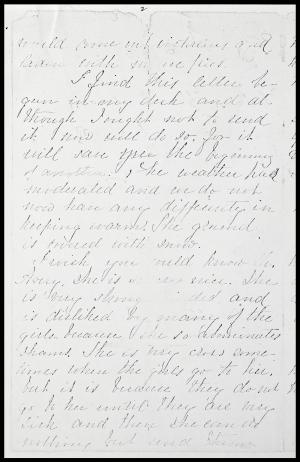 2
would come out in
laden with
I find this letter be-
gun in my desk and al-
though I ought not to send
it now will do so, for it
will save even the beginning
of another. The weather has
moderated and we do not
now have any difficulty in
keeping warm. The ground
is covered with snow.
I wish you could know
Avery. She is very nice. She
is very strong and
is disliked by many of the
girls because she so abominates
shams. She is very cross some-
times when the girls go to her,
but it is because they do not
go to her until they are very
sick and then she can do
nothing but send